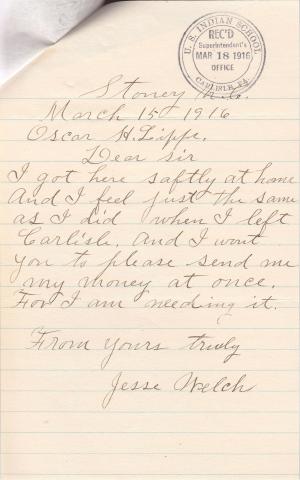 U.S. INDIAN SCHOOL
REC'D
Superintendent's
MAR 18 1916
OFFICE
CARLISLE, PA.
Stoney
March 15 1916
Oscar H. Lippe,
Dear sir
I got here saftly at home
And I feel just the same
as I did when I left
Carlisle. And I wont
you to please send me
my money at once.
For I am needing it.
From yours truly
Jesse Welch